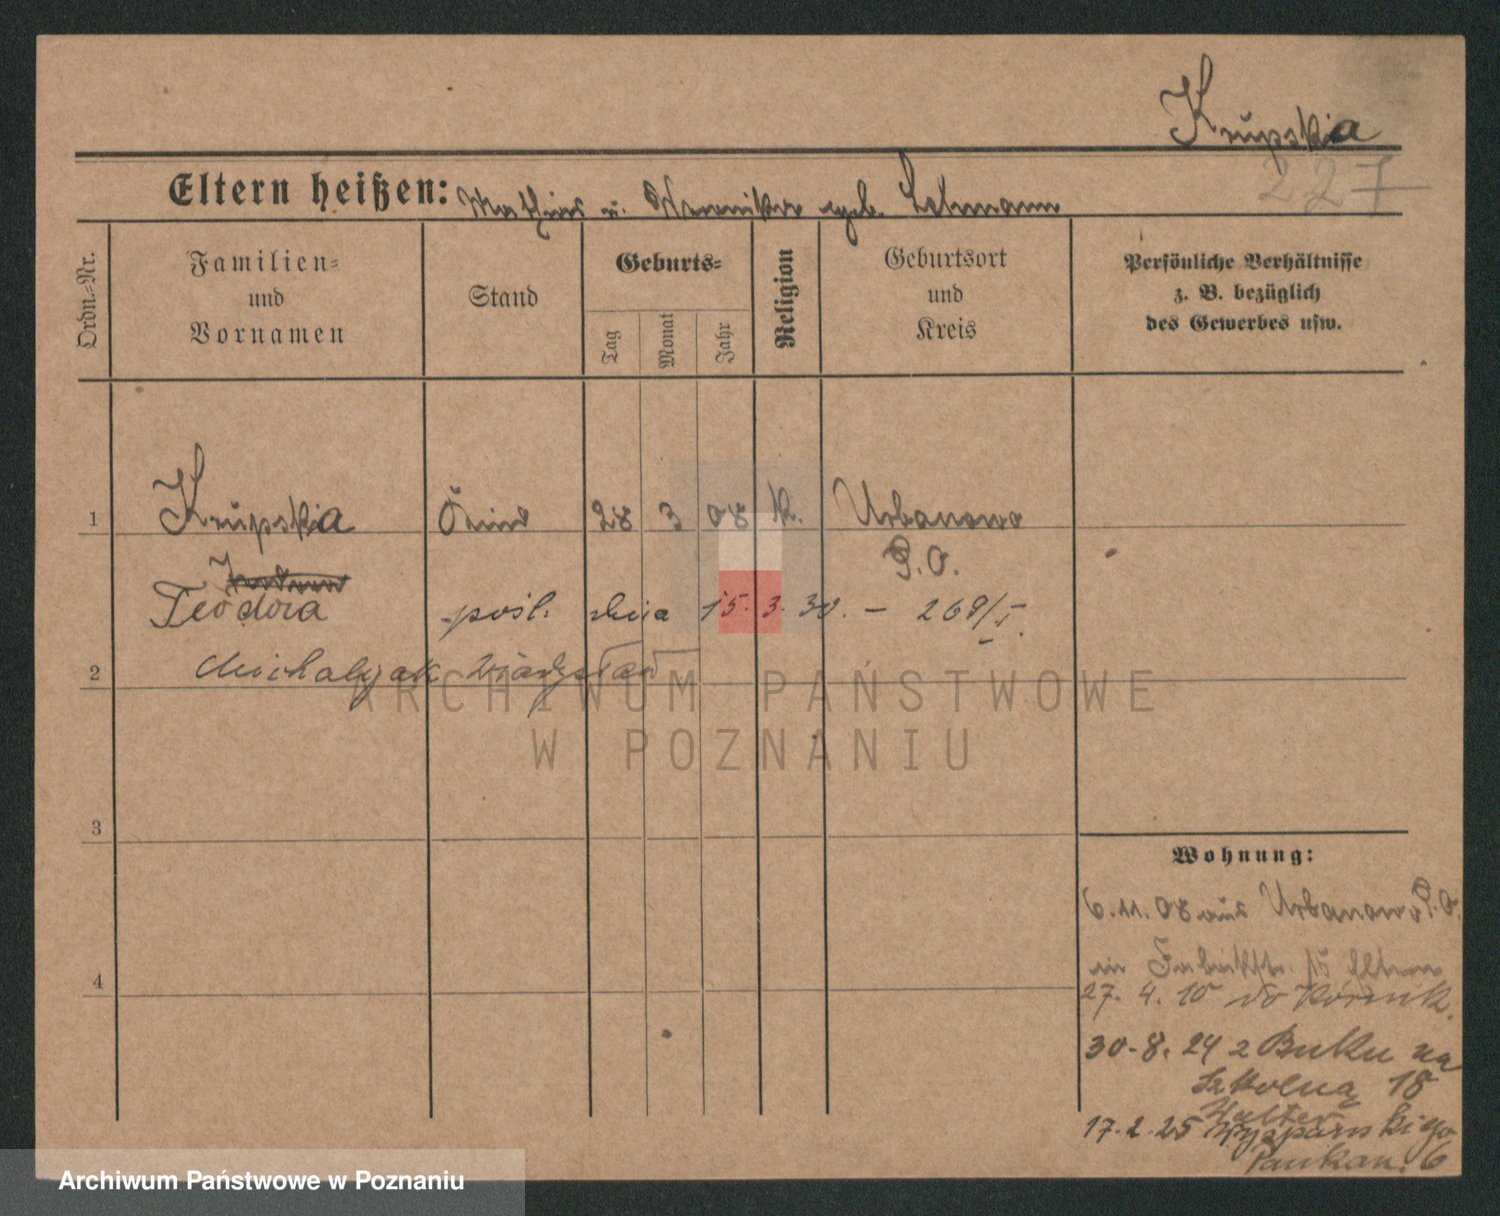 Krupska
227
Eltern heißen: Mathias u. Veronika geb. Lehmann
Ordn.-Nr.
Familien-
und
Vornamen
Stand
Geburts-
Tag
Monat
Jahr
Religion
Geburtsort
und
Kreis
Persönliche Verhältnisse
z. B. bezüglich
des Gewerbes usw.
1 Krupska 28 3 08 k. Urbanowo
P.O.
Teodora pośl. dnia 15.3.30. – 269/I.
2 Michalczak Władysław
3
4
Wohnung:
6.11.08 aus Urbanowo P.O.
in Fabrikstr. zu Eltern
27. 4. 10 Kórnik.
30-8. 24 z Buku na
Szkolną 18
17.2.25 Wyspiańskiego
6
ARCHIWUM PAŃSTWOWE
W POZNANIU
Archiwum Państwowe w Poznaniu